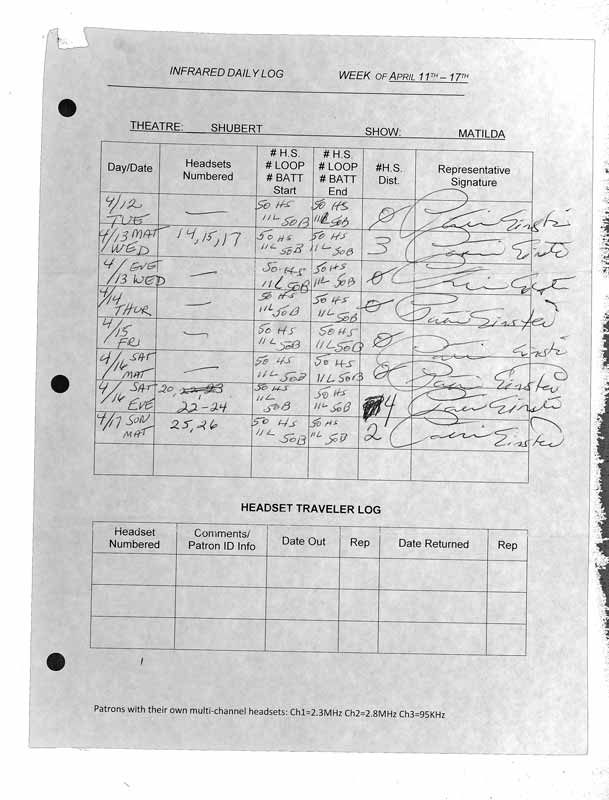 INFRARED DAILY LOG WEEK OF APRIL 11TH – 17TH
THEATRE: SHUBERT SHOW: MATILDA
Day/Date Headsets Numbered # H.S. # LOOP # BATT Start # H.S. # LOOP # BATT End #H.S. Dist. Representative Signature
4/12 TUE — 50 HS 11L 50B 50 HS 11L 50B 0
4/13 MAT WED 14,15,17 50 HS 11L 50B 50 HS 11L 50B 3
4/13 EVE WED — 50 HS 11L 50B 50 HS 11L 50B 0
4/14 THUR — 50 HS 11L 50B 50 HS 11L 50B 0
4/15 FRI — 50 HS 11L 50B 50 HS 11L 50B 0
4/16 SAT MAT — 50 HS 11L 50B 50 HS 11L 50B 0
4/16 SAT EVE 20, 22-24 50 HS 11L 50B 50 HS 11L 50B 4
4/17 SUN MAT 25,26 50 HS 11L 50B 50 HS 11L 50B 2
HEADSET TRAVELER LOG
Headset Numbered Comments/ Patron ID Info Date Out Rep Date Returned Rep
Patrons with their own multi-channel headsets: Ch1=2.3MHz Ch2=2.8MHz Ch3=95KHz